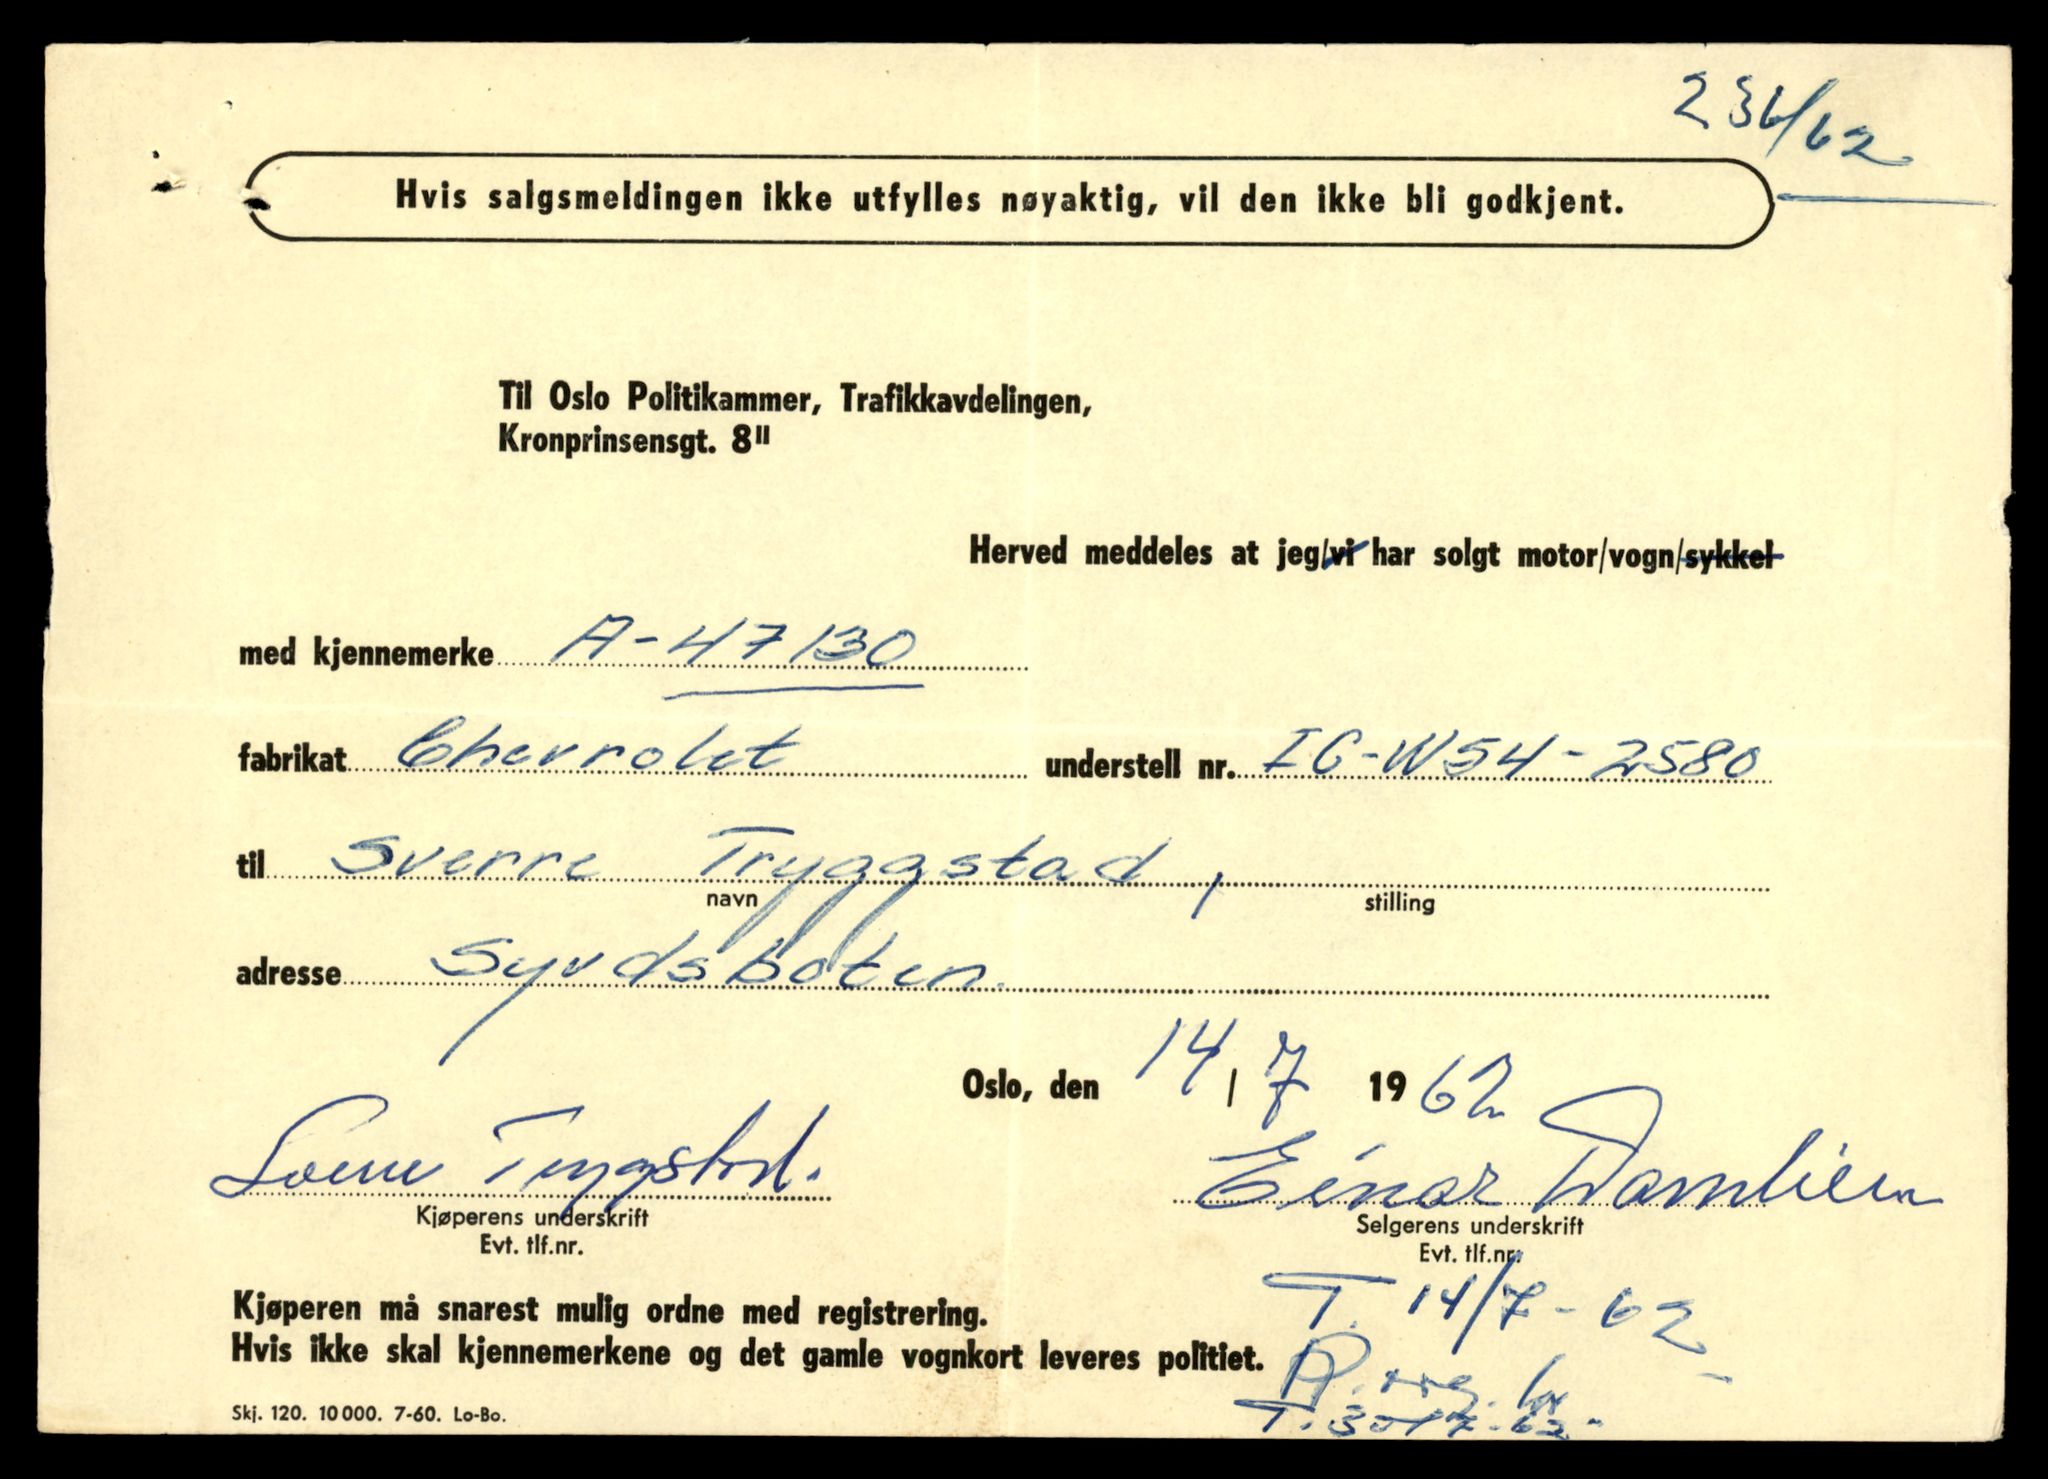 236/62
Hvis salgsmeldingen ikke utfylles nøyaktig, vil den ikke bli godkjent.
Til Oslo Politikammer, Trafikkavdelingen,
Kronprinsensgt. 8II
Herved meddeles at jeg/vi har solgt motor/vogn/sykkel
med kjennemerke A-47130
fabrikat Chevrolet understell nr. IC-W54-2580
til Sverre Tryggstad,
navn stilling
adresse Syvdsboten.
Oslo, den 14/7 1962
Sverre Tryggstad. Einar Damlien
Kjøperens underskrift Selgerens underskrift
Evt. tlf.nr. Evt. tlf.nr.
T. 14/7-62
Kjøperen må snarest mulig ordne med registrering.
Hvis ikke skal kjennemerkene og det gamle vognkort leveres politiet.
T. 30/7-62-
Skj. 120. 10 000. 7-60. Lo-Bo.